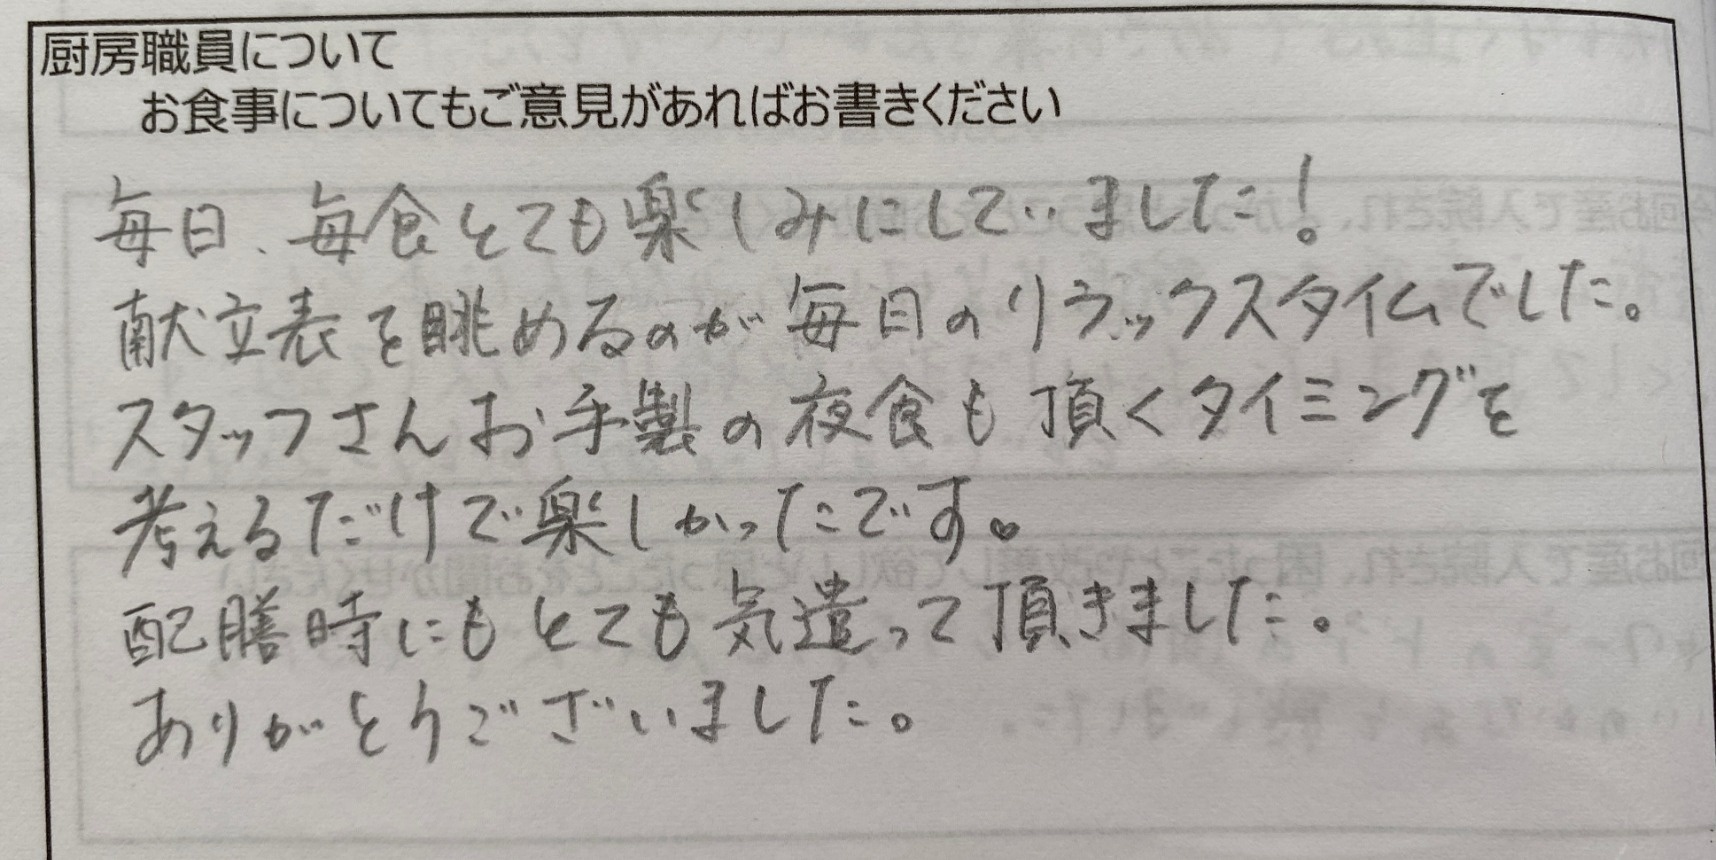 厨房職員について
お食事についてもご意見があればお書きください
毎日、毎食とても楽しみにしていました!。
献立表を眺めるのが毎日のリラックスタイムでした。
スタッフさんお手製の夜食も頂くタイミングを
考えるだけで楽しかったです。
配膳時にもとても気遣って頂きました。
ありがとうございました。